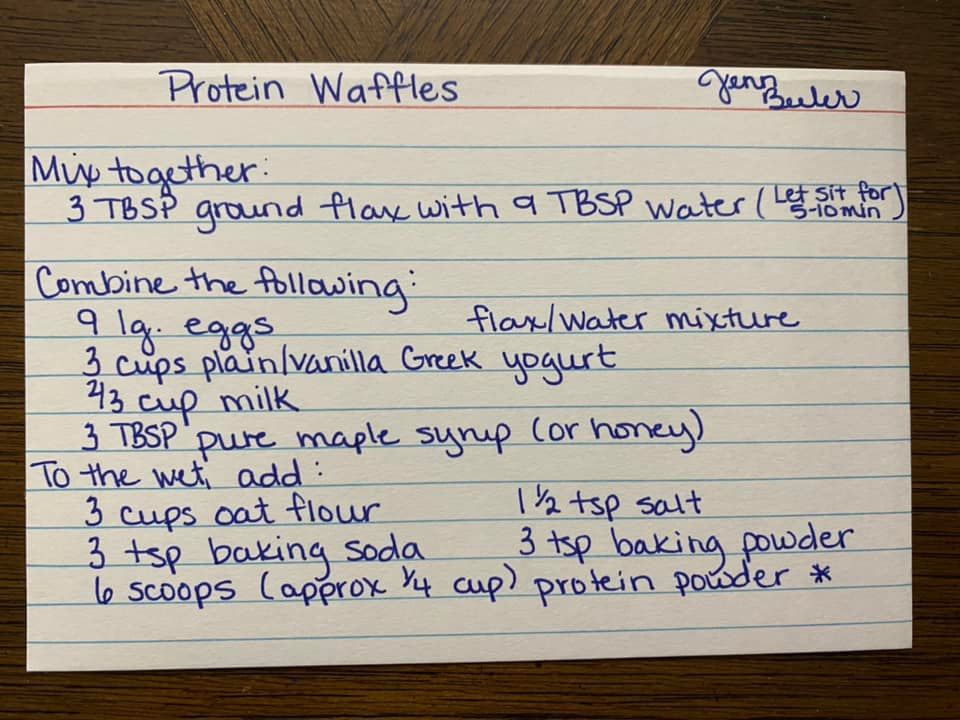 Protein Waffles
Jenn
Beeler
Mix together:
3 TBSP ground flax with 9 TBSP water (Let sit for 5-10 min)
Combine the following:
9 lg. eggs flax/water mixture
3 cups plain/vanilla Greek yogurt
2/3 cup milk
3 TBSP pure maple syrup (or honey)
To the wet, add:
3 cups oat flour 1 1/2 tsp salt
3 tsp baking soda 3 tsp baking powder
6 scoops (approx 1/4 cup) protein powder *